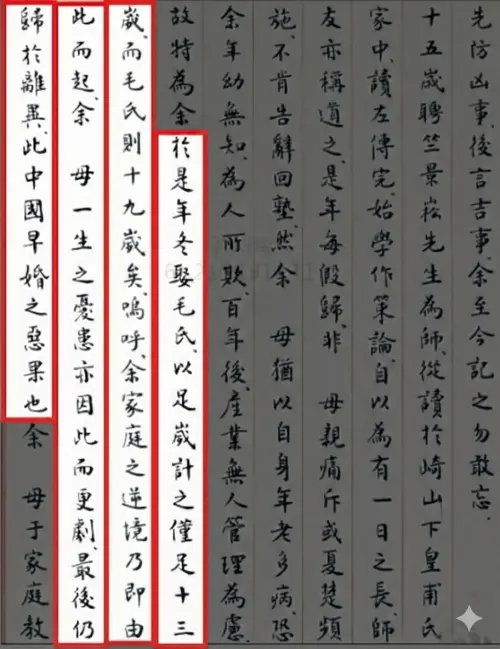 先防凶事後言吉事、余至今記之勿敢忘、
十五歲聘竺景崧先生為師、從讀於崎山下皇甫氏
家中、讀左傳完、始學作策論、自以為有一日之長、師
友亦稱道之、是年每假歸、非　母親痛斥或夏楚頻
施、不肯告辭回塾、然余　母猶以自身年老多病、恐
余年幼無知、為人所欺、百年後、產業無人管理為慮、
故特為余於是年冬娶毛氏、以足歲計之僅足十三
歲、而毛氏則十九歲矣、嗚呼、余家庭之逆境乃即由
此而起、余　母一生之憂患亦因此而更劇、最後仍
歸於離異、此中國早婚之惡果也余　母于家庭教